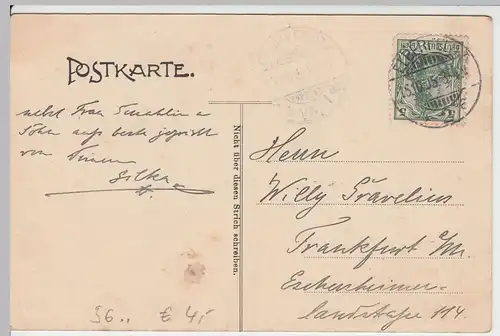 POSTKARTE.
nebst Frau Gemahlin u
Sohn aufs beste gegrüßt
von Ihrem
Nicht über diesen Strich schreiben.
Herrn
Willy Gravelius
Frankfurt a/M.
Eschersheimer-
landstraße 114.
S6.. € 4,-